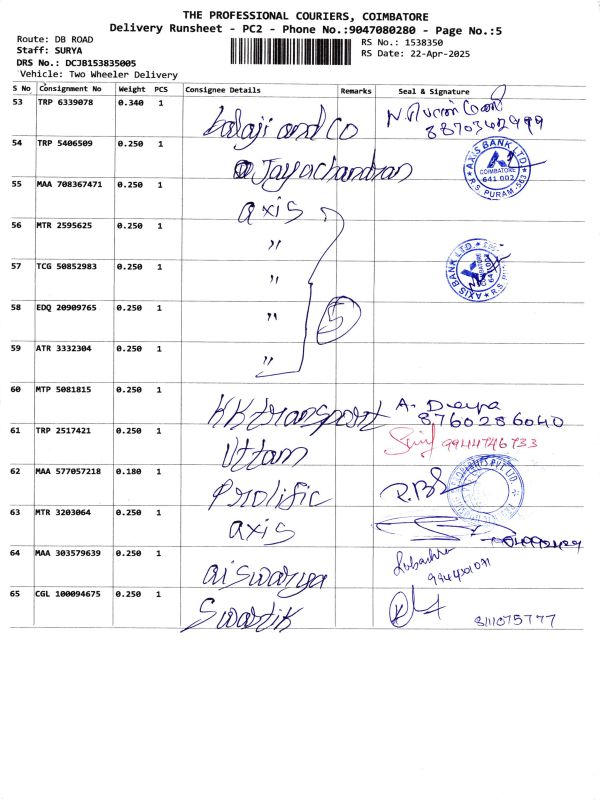 THE PROFESSIONAL COURIERS, COIMBATORE
Delivery Runsheet - PC2 - Phone No.:9047080280 - Page No.:5
Route: DB ROAD
Staff: SURYA
DRS No.: DCJB153835005
Vehicle: Two Wheeler Delivery
RS No.: 1538350
RS Date: 22-Apr-2025
S No Consignment No Weight PCS Consignee Details Remarks Seal & Signature
53 TRP 6339078 0.340 1 balaji and Co
54 TRP 5406509 0.250 1 Jayachandran
AXIS BANK LTD.
COIMBATORE
641 002
R.S. PURAM-563
55 MAA 708367471 0.250 1 axis
56 MTR 2595625 0.250 1 "
57 TCG 50852983 0.250 1 "
AXIS BANK LTD.
58 EDQ 20909765 0.250 1 " 5
59 ATR 3332304 0.250 1 "
60 MTP 5081815 0.250 1 KK transport A. Deepa
8760286040
61 TRP 2517421 0.250 1 Uttam 9944746733
62 MAA 577057218 0.180 1 Prolific
63 MTR 3203064 0.250 1 axis
64 MAA 303579639 0.250 1 aiswarya
65 CGL 100094675 0.250 1 Swastik 8111075777